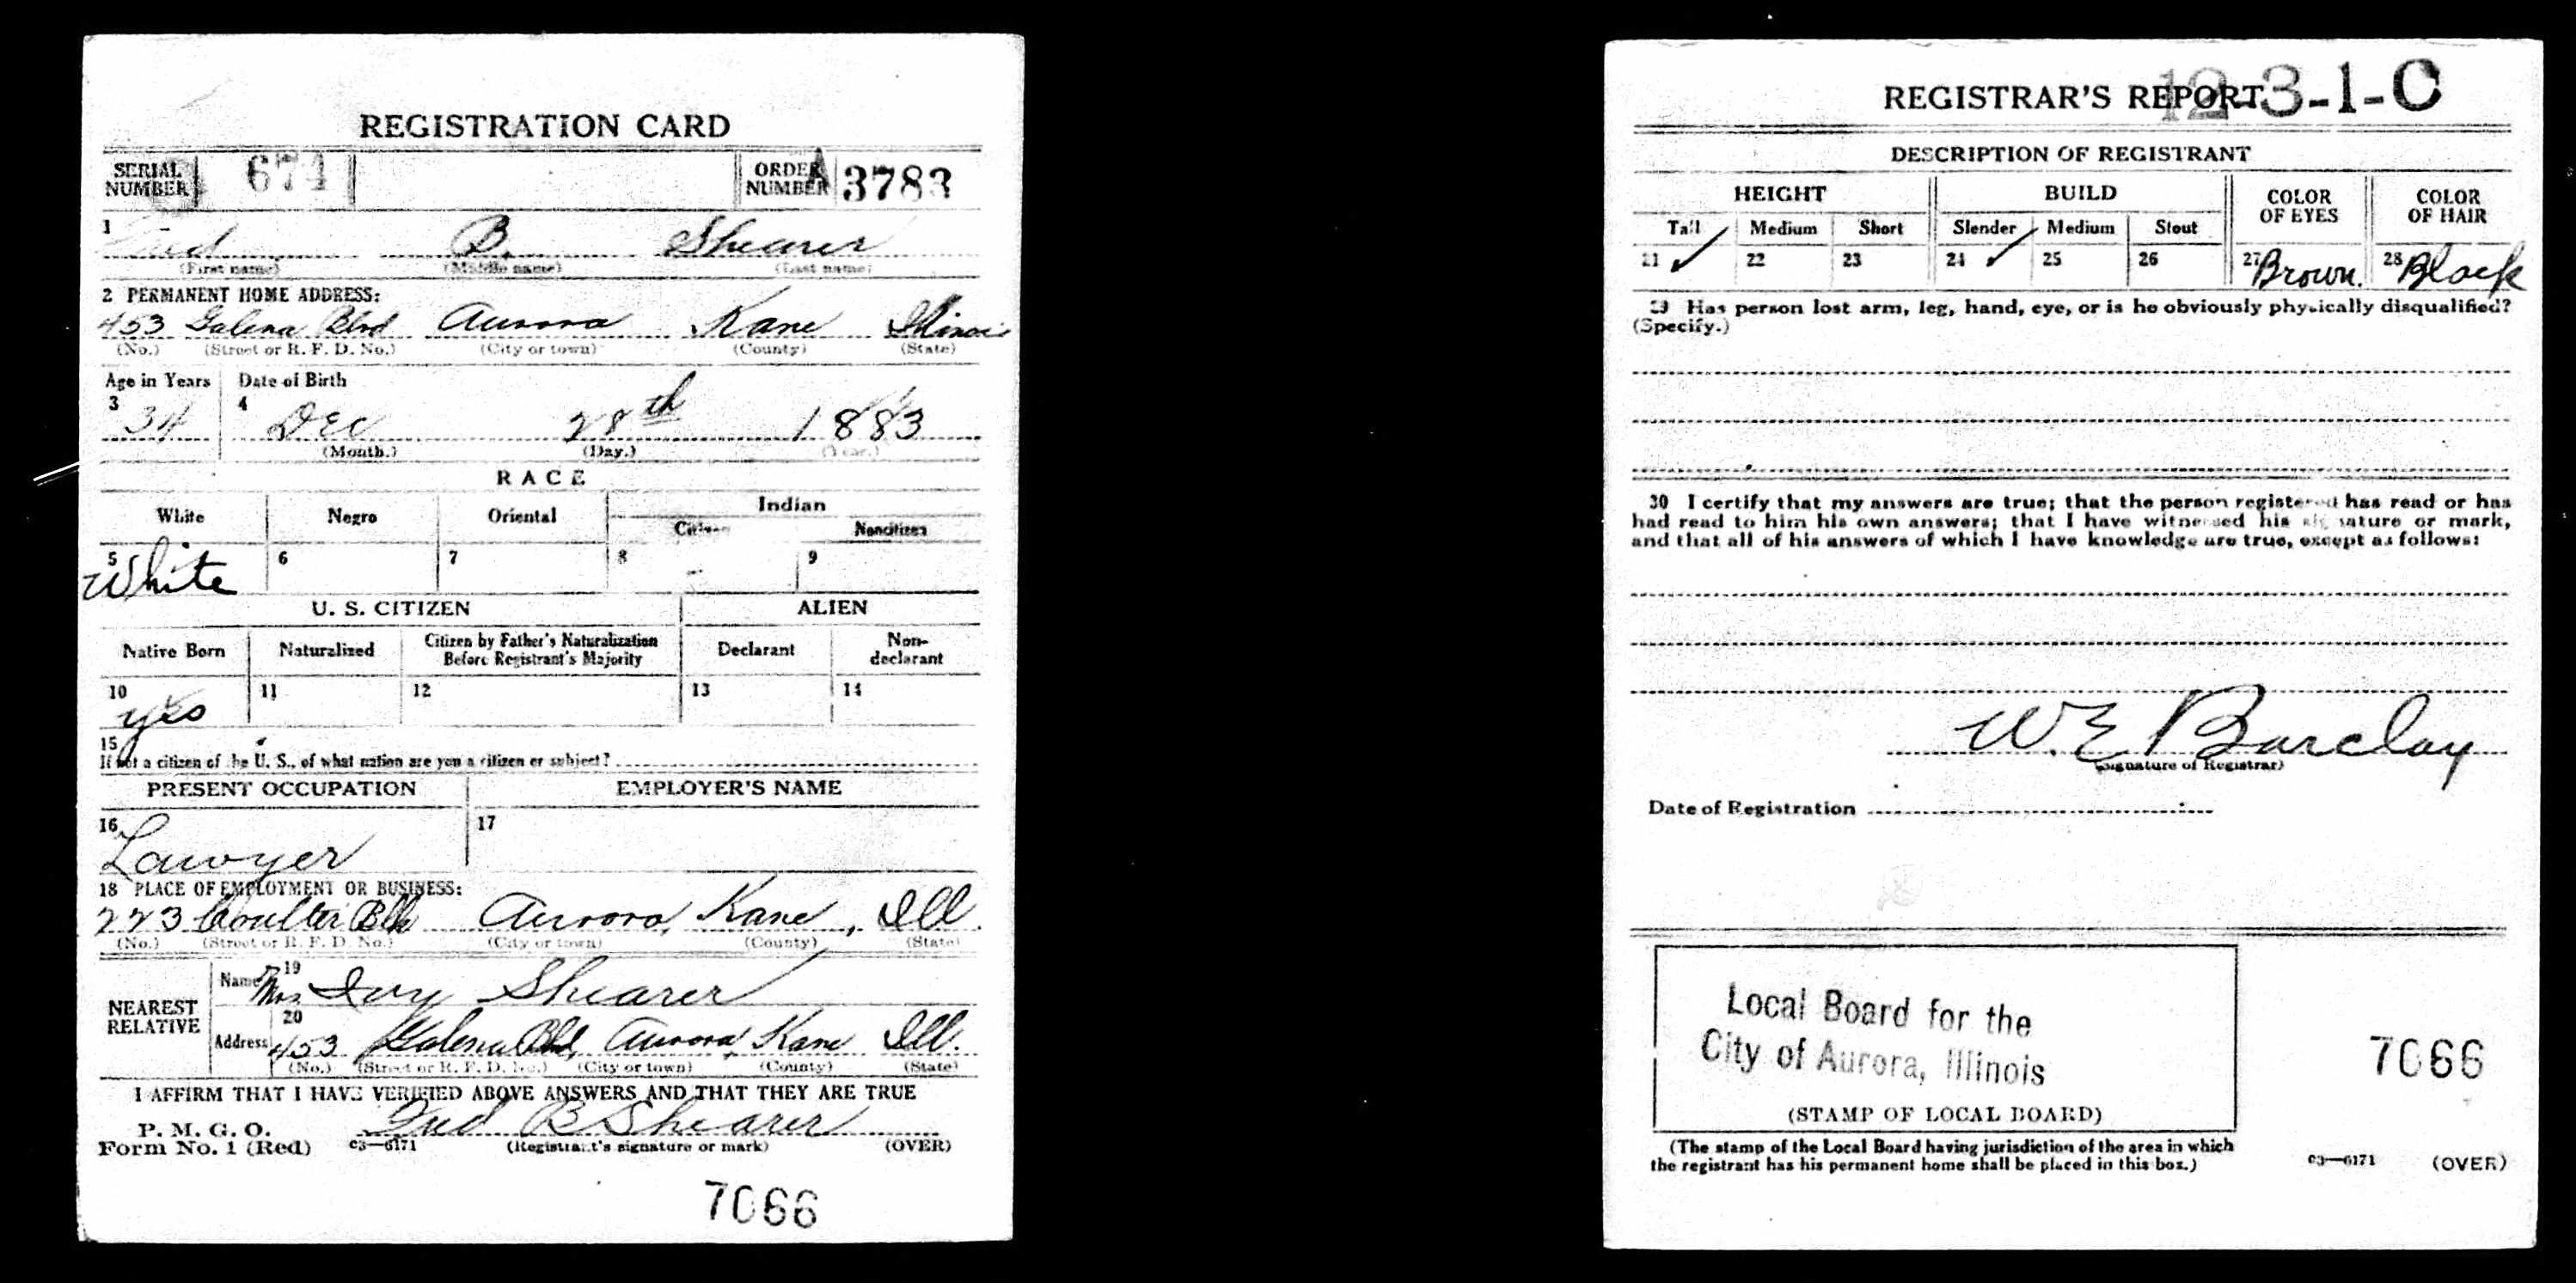 REGISTRATION CARD
SERIAL NUMBER 674 ORDER NUMBER A 3783
1 Fred B. Shearer
(First name) (Middle name) (Last name)
2 PERMANENT HOME ADDRESS:
453 Galena Blvd Aurora Kane Illinois
(No.) (Street or R. F. D. No.) (City or town) (County) (State)
Age in Years Date of Birth
3 34 4 Dec 28th 1883
(Month.) (Day.) (Year.)
RACE
White Negro Oriental Indian
Citizen Noncitizen
5 White 6 7 8 9
U. S. CITIZEN ALIEN
Native Born Naturalized Citizen by Father's Naturalization Before Registrant's Majority Declarant Non-declarant
10 yes 11 12 13 14
15
If not a citizen of the U. S., of what nation are you a citizen or subject?
PRESENT OCCUPATION EMPLOYER'S NAME
16 Lawyer 17
18 PLACE OF EMPLOYMENT OR BUSINESS:
223 Coulter Blk Aurora, Kane, Ill.
(No.) (Street or R. F. D. No.) (City or town) (County) (State)
NEAREST RELATIVE
Name 19 Mrs. Ivy Shearer
20
Address 453 Galena Blvd, Aurora, Kane Ill.
(No.) (Street or R. F. D. No.) (City or town) (County) (State)
I AFFIRM THAT I HAVE VERIFIED ABOVE ANSWERS AND THAT THEY ARE TRUE
Fred B Shearer
P. M. G. O.
Form No. 1 (Red) 03—6171 (Registrant's signature or mark) (OVER)
7066
REGISTRAR'S REPORT
12-3-1-C
DESCRIPTION OF REGISTRANT
HEIGHT BUILD COLOR OF EYES COLOR OF HAIR
Tall Medium Short Slender Medium Stout
21 ✓ 22 23 24 ✓ 25 26 27 Brown. 28 Black
29 Has person lost arm, leg, hand, eye, or is he obviously physically disqualified?
(Specify.)
30 I certify that my answers are true; that the person registered has read or has
had read to him his own answers; that I have witnessed his signature or mark,
and that all of his answers of which I have knowledge are true, except as follows:
W. E Barclay
(Signature of Registrar)
Date of Registration
Local Board for the
City of Aurora, Illinois
7066
(STAMP OF LOCAL BOARD)
(The stamp of the Local Board having jurisdiction of the area in which
the registrant has his permanent home shall be placed in this box.)
03—6171 (OVER)